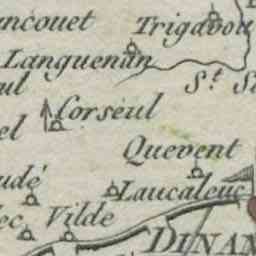 ncouet
Trigavou
Languenan
ul
St. S
Corseul
el
Quevent
udé
Laucaleuc
ec
Vilde
DINAN